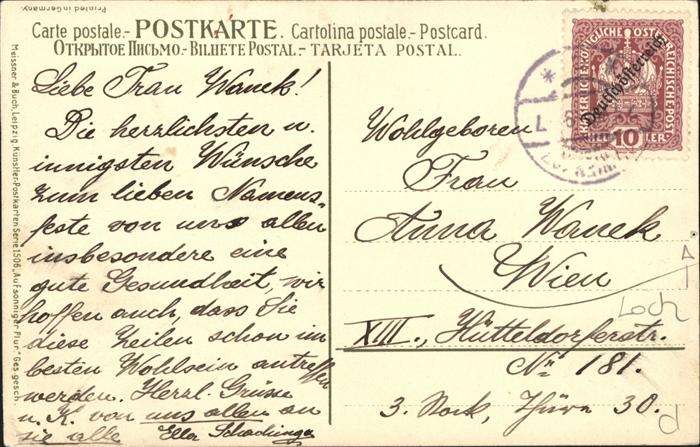 Printed in Germany
Carte postale.- POSTKARTE. Cartolina postale.- Postcard.
ОТКРЫТОЕ ПИСЬМО.- BILHETE POSTAL.- TARJETA POSTAL.
Meissner & Buch, Leipzig. Künstler-Postkarten Serie 1506. „Auf sonniger Flur" Ges. gesch.
Liebe Frau Wanek!
Die herzlichsten u.
innigsten Wünsche
zum lieben Namens-
feste von uns allen
insbesondere eine
gute Gesundheit, wir
hoffen auch, dass Sie
diese Zeilen schon im
besten Wohlsein antreffen
werden. Herzl. Grüsse
u. K. von uns allen an
sie alle Ella
KAISERLICHE KÖNIGLICHE ÖSTERREICHISCHE POST
Deutschösterreich
10 HELLER
Wohlgeboren
Frau
Anna Wanek
Wien
Loch
XIII., Hütteldorferstr.
Nr. 181.
3. Stock, Thüre 30.